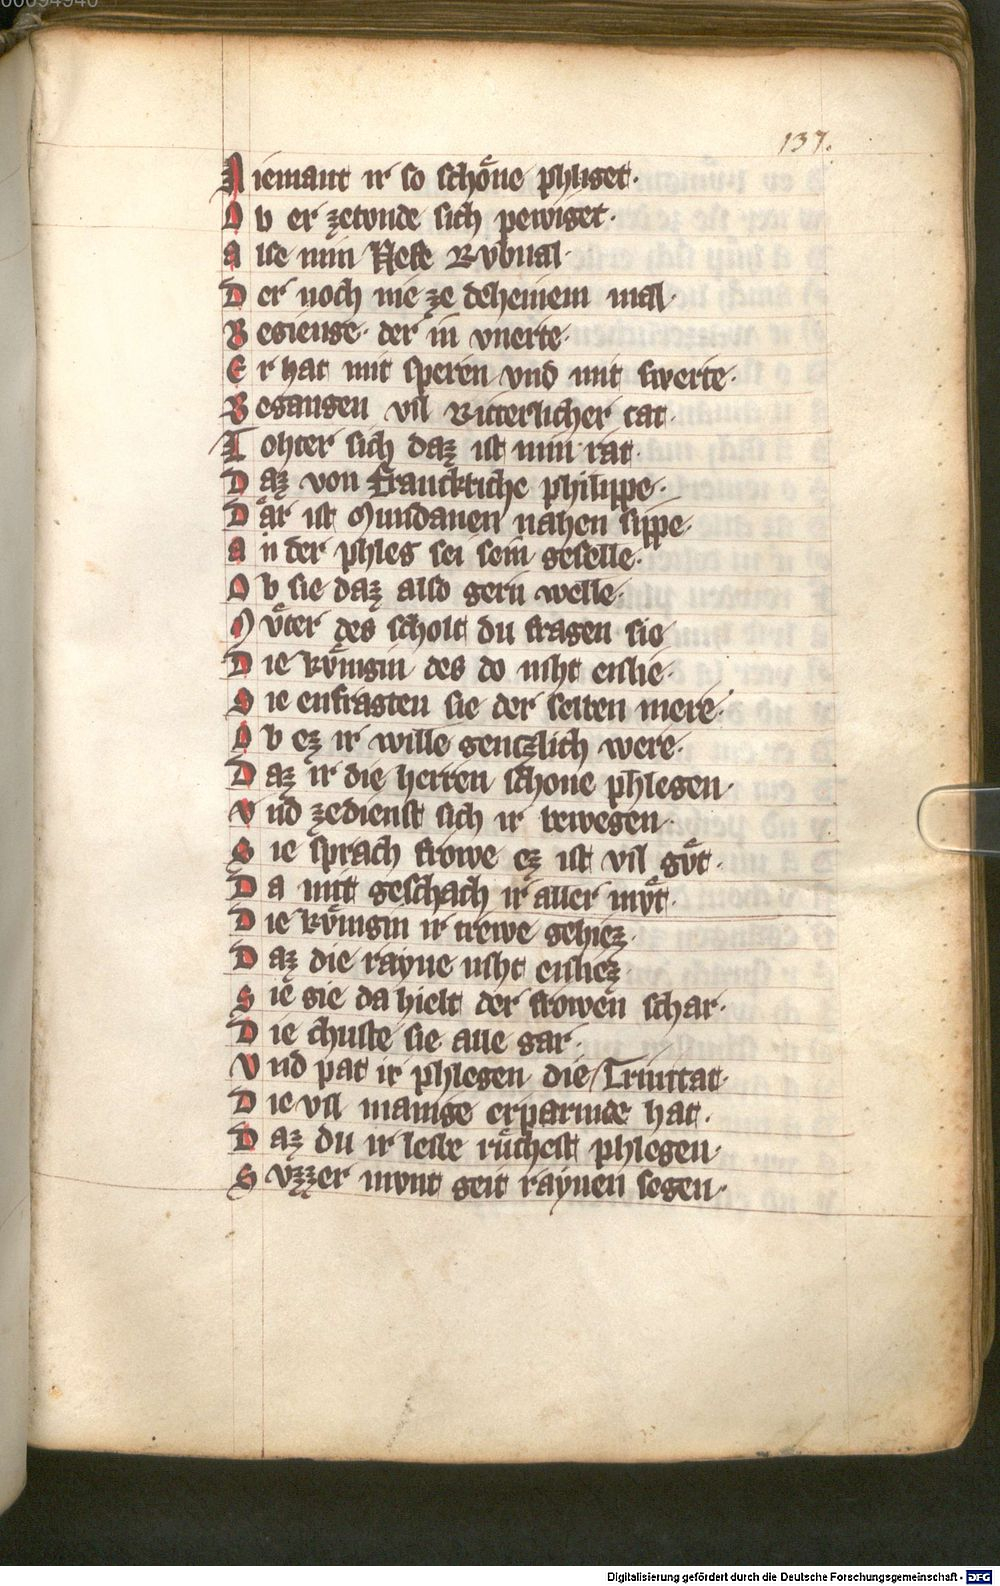 00094940
137.
Niemant ir so schoͤne phliget·
Ob er zetonde sich pewiget·
Alse min Nefe Rubual·
Der noch nie ze deheinem mal·
Begienge· der in vnerte·
Er hat mit speren vnd mit swerte·
Begangen vil Ritterlicher tat·
Tohter sich daz ist min rat·
Daz von franckriche philippe·
Daͤr ist Gundanen nahen sippe·
An der phleg sei sein geselle·
Ob sie daz also gern welle·
Muͦter des scholt du fragen sie
Die kuͤnigin des do niht enlie·
Sie enfragten sie der selten mere·
Ob ez ir wille gentzlich were·
Daz ir die herren schone phlegen·
Vnd zedienst sich ir bewegen·
Sie sprach frowe ez ist vil guͦt·
Da mit geschach ir aller muͦt·
Die kuͤnigin ir trewe gehiez·
Daz die rayne niht enliez
Sie sie da hielt der frowen schar·
Die chuste sie alle gar·
Vnd pat ir phlegen die Trinitat·
Die vil manige erparmde hat·
Daz du ir leibe ruͤchest phlegen·
Svzzer mvnt geit raynen segen·
Digitalisierung gefördert durch die Deutsche Forschungsgemeinschaft - DFG